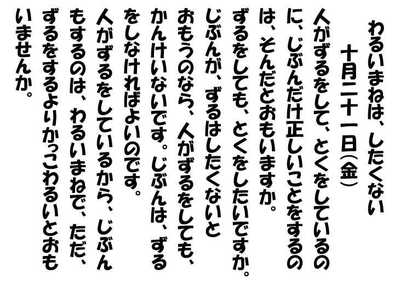 わるいまねは、したくない
十月二十一日（金）
人がずるをして、とくをしているの
に、じぶんだけ正しいことをするの
は、そんだとおもいますか。
ずるをしても、とくをしたいですか。
じぶんが、ずるはしたくないと
おもうのなら、人がずるをしても、
かんけいないです。じぶんは、ずる
をしなければよいのです。
人がずるをしているから、じぶん
もするのは、わるいまねで、ただ、
ずるをするよりかっこわるいとおも
いませんか。